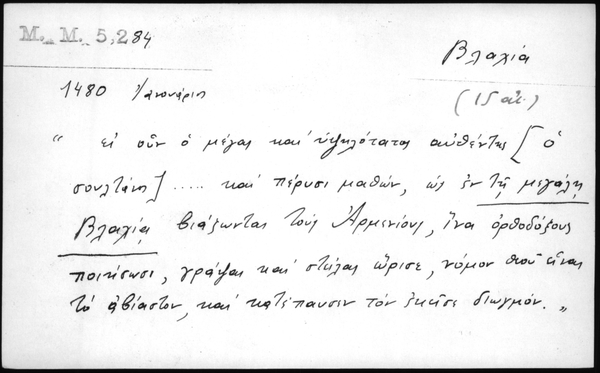 M. M. 5,284
Βλαχία
1480 Ἰανουάριος
(15 αἰ.)
" εἰ οὖν ὁ μέγας καὶ ὑψηλότατος αὐθέντης [ὁ
σουλτάνος] ..... καὶ πέρυσι μαθών, ὡς ἐν τῇ μεγάλῃ
Βλαχίᾳ βιάζονται τοὺς Ἀρμενίους, ἵνα ὀρθοδόξους
ποιήσωσι, γράψας καὶ στείλας ὥρισε, νόμον θεοῦ εἶναι
τὸ ἀβίαστον, καὶ κατέπαυσεν τὸν ἐκεῖσε διωγμόν. "